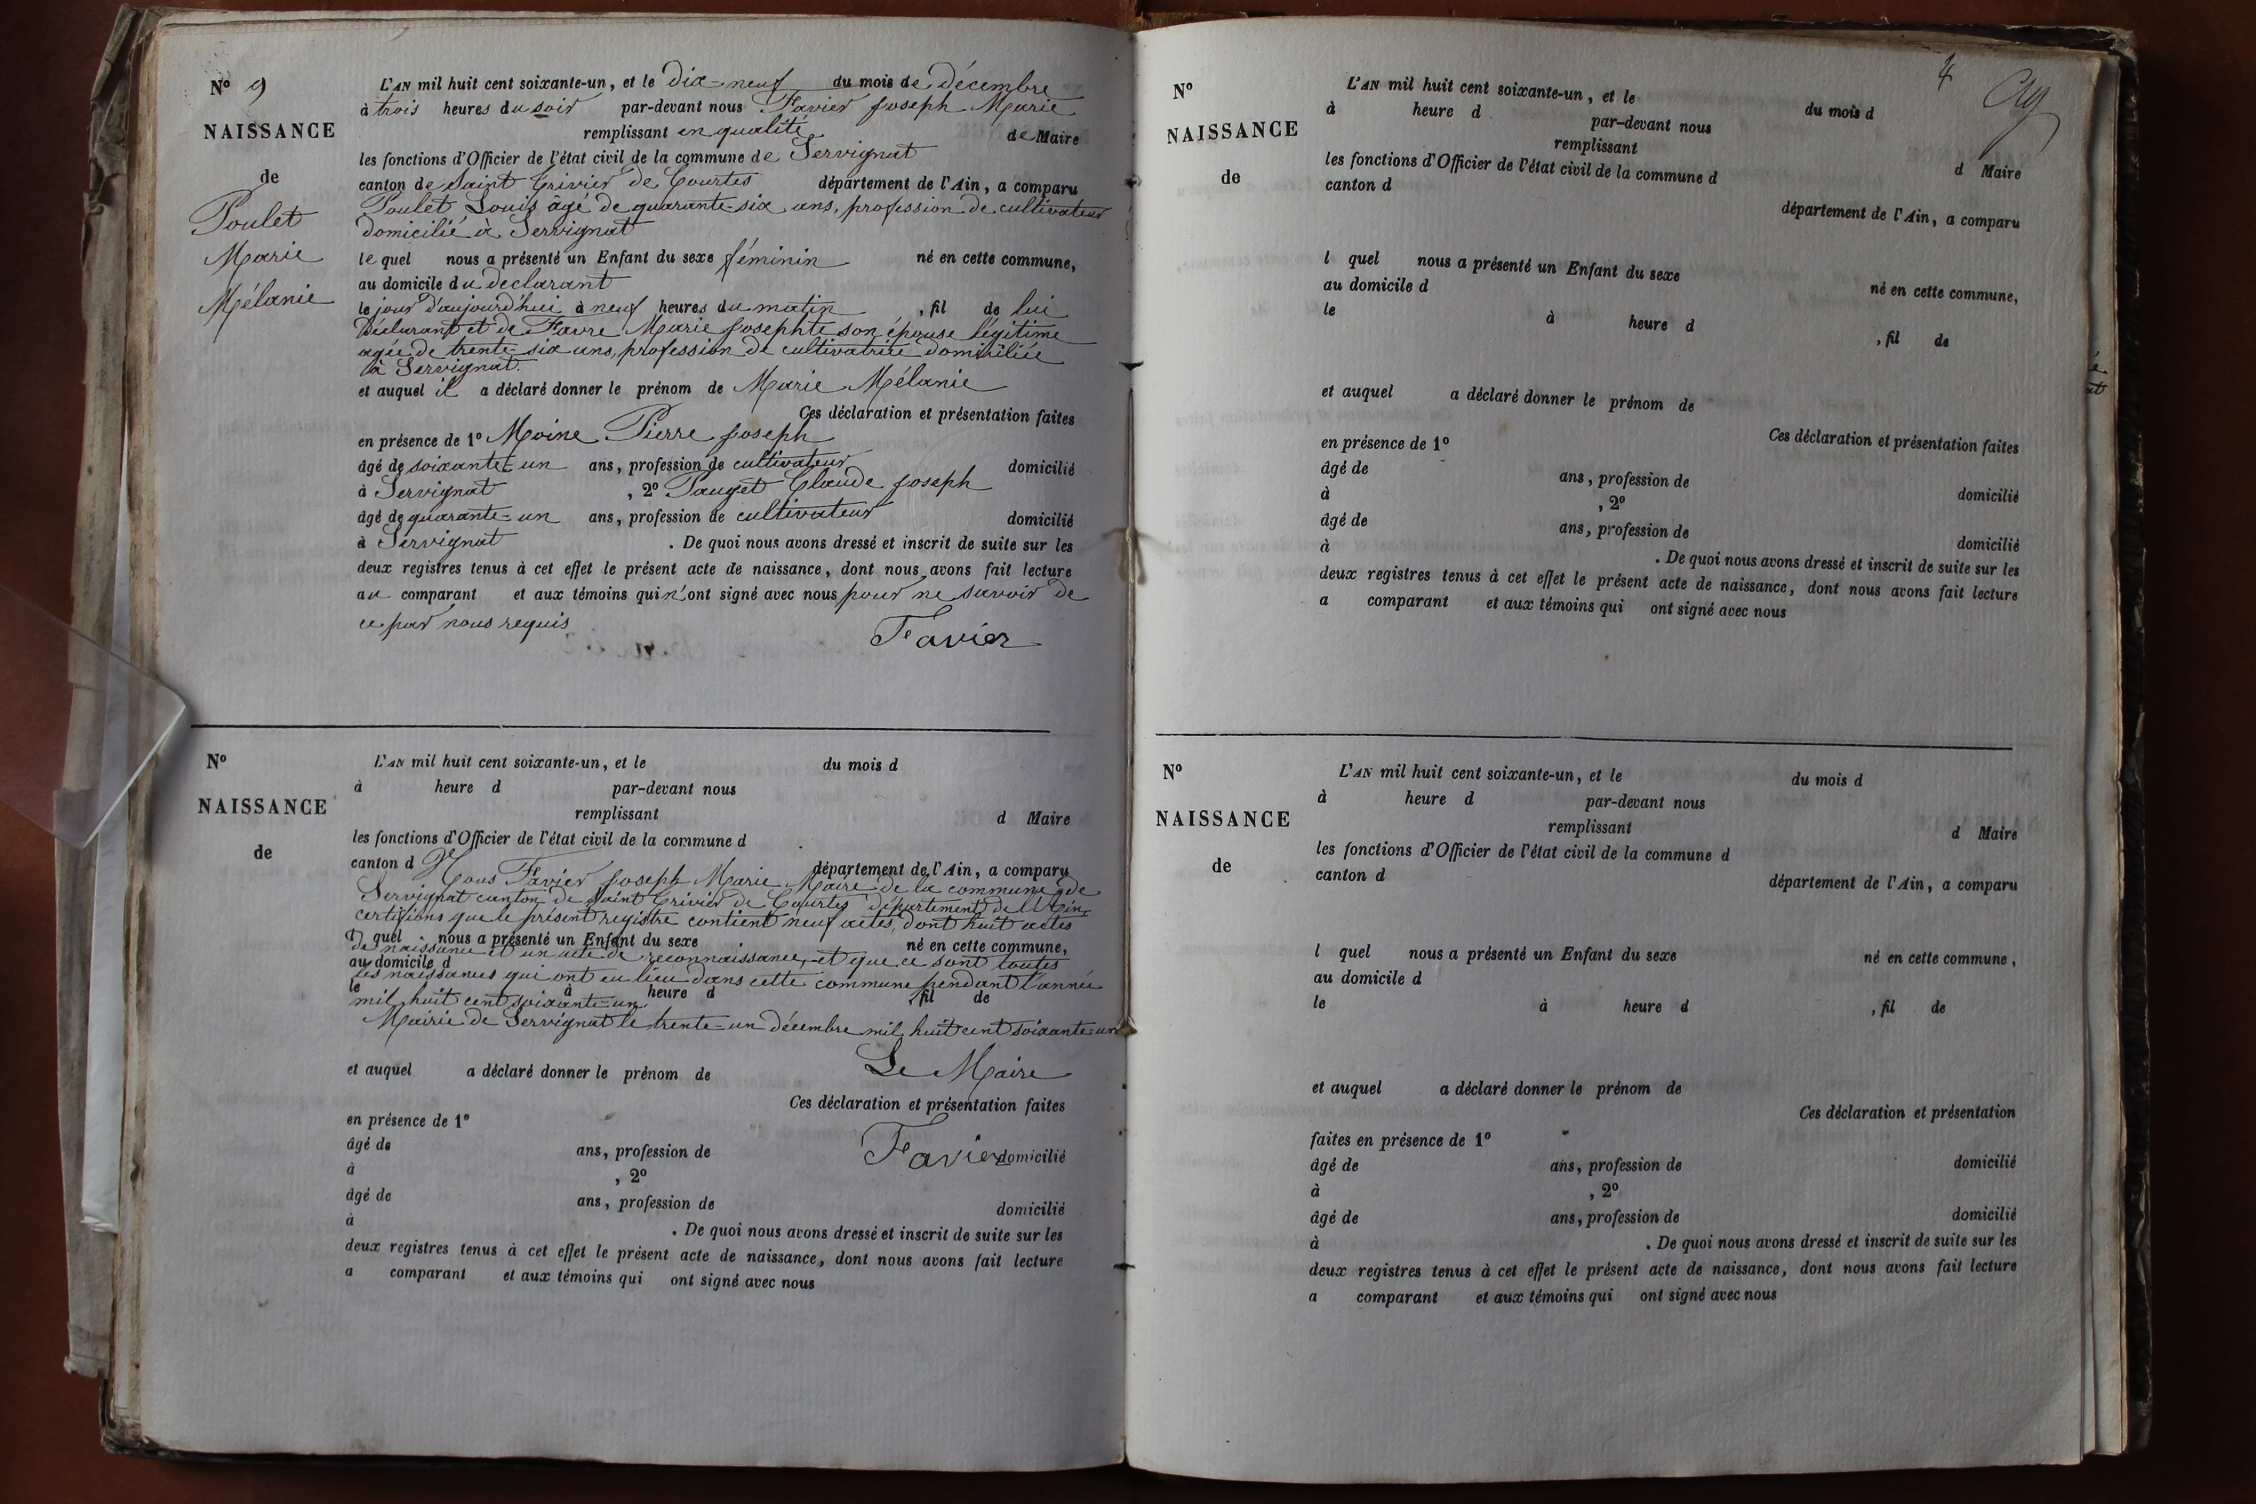 Nº 9
NAISSANCE
de
Poulet
Marie
Mélanie
L'AN mil huit cent soixante-un, et le dix-neuf du mois de décembre
à trois heures du soir par-devant nous Favier Joseph Marie
remplissant en qualité de Maire
les fonctions d'Officier de l'état civil de la commune de Servignat
canton de Saint Trivier de Courtes département de l'Ain, a comparu
Poulet Louis âgé de quarante-six ans, profession de cultivateur
domicilié à Servignat
lequel nous a présenté un Enfant du sexe féminin né en cette commune,
au domicile du declarant
le jour d'aujourd'hui à neuf heures du matin, fil de lui
Déclarant et de Favre Marie Josephte son épouse légitime
agée de trente-six ans, profession de cultivatrice domiciliée
à Servignat.
et auquel il a déclaré donner le prénom de Marie Mélanie
Ces déclaration et présentation faites
en présence de 1º Moine Pierre Joseph
âgé de soixante-un ans, profession de cultivateur domicilié
à Servignat, 2º Pauget Claude Joseph
âgé de quarante-un ans, profession de cultivateur domicilié
à Servignat. De quoi nous avons dressé et inscrit de suite sur les
deux registres tenus à cet effet le présent acte de naissance, dont nous avons fait lecture
au comparant et aux témoins qui n'ont signé avec nous pour ne savoir de
ce par nous requis
Favier
Nº
NAISSANCE
de
L'AN mil huit cent soixante-un, et le du mois d
à heure d par-devant nous
remplissant d Maire
les fonctions d'Officier de l'état civil de la commune d
canton d département de l'Ain, a comparu
Nous Favier Joseph Marie Maire de la commune de
Servignat canton de Saint Trivier de Courtes département de l'Ain
certifions que le présent registre contient neuf actes, dont huit actes
l quel nous a présenté un Enfant du sexe né en cette commune,
de naissance et un acte de reconnaissance, et que ce sont toutes
au domicile d
les naissances qui ont eu lieu dans cette commune pendant l'année
le à heure d, fil de
mil huit cent soixante-un
Mairie de Servignat le trente-un décembre mil huit cent soixante-un
Le Maire
et auquel a déclaré donner le prénom de
Ces déclaration et présentation faites
en présence de 1º
Favier
âgé de ans, profession de domicilié
à, 2º
âgé de ans, profession de domicilié
à. De quoi nous avons dressé et inscrit de suite sur les
deux registres tenus à cet effet le présent acte de naissance, dont nous avons fait lecture
a comparant et aux témoins qui ont signé avec nous
4
Nº
NAISSANCE
de
L'AN mil huit cent soixante-un, et le du mois d
à heure d par-devant nous
remplissant d Maire
les fonctions d'Officier de l'état civil de la commune d
canton d département de l'Ain, a comparu
l quel nous a présenté un Enfant du sexe né en cette commune,
au domicile d
le à heure d, fil de
et auquel a déclaré donner le prénom de
Ces déclaration et présentation faites
en présence de 1º
âgé de ans, profession de domicilié
à, 2º
âgé de ans, profession de domicilié
à. De quoi nous avons dressé et inscrit de suite sur les
deux registres tenus à cet effet le présent acte de naissance, dont nous avons fait lecture
a comparant et aux témoins qui ont signé avec nous
Nº
NAISSANCE
de
L'AN mil huit cent soixante-un, et le du mois d
à heure d par-devant nous
remplissant d Maire
les fonctions d'Officier de l'état civil de la commune d
canton d département de l'Ain, a comparu
l quel nous a présenté un Enfant du sexe né en cette commune,
au domicile d
le à heure d, fil de
et auquel a déclaré donner le prénom de
Ces déclaration et présentation
faites en présence de 1º
âgé de ans, profession de domicilié
à, 2º
âgé de ans, profession de domicilié
à. De quoi nous avons dressé et inscrit de suite sur les
deux registres tenus à cet effet le présent acte de naissance, dont nous avons fait lecture
a comparant et aux témoins qui ont signé avec nous